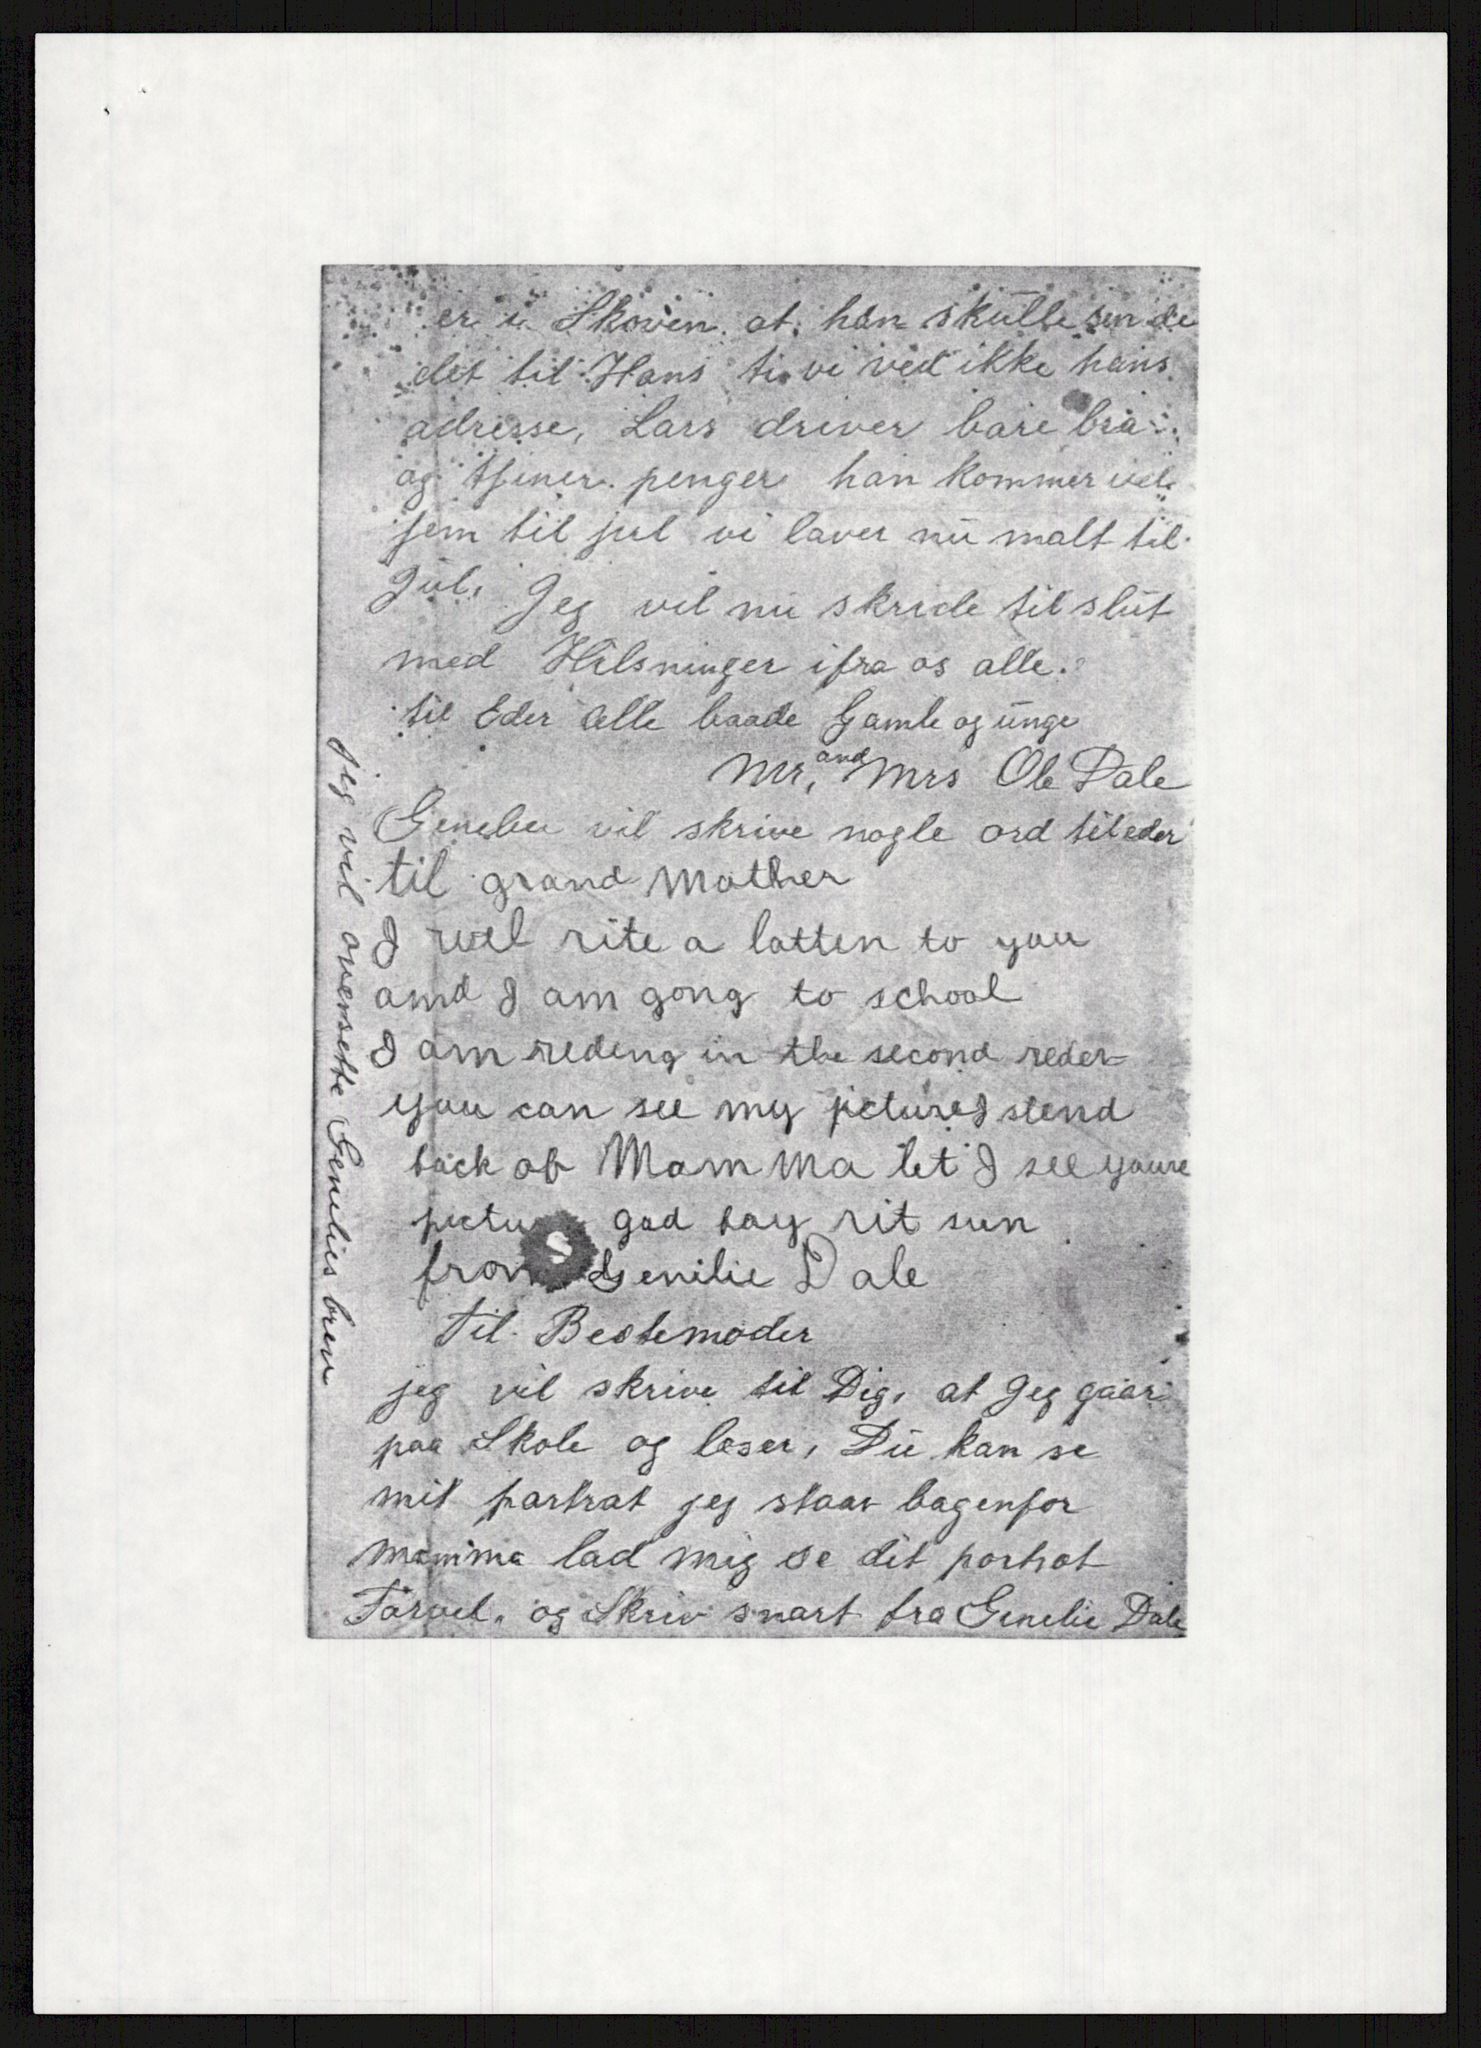 er i Skoven at han skulle sende
det til Hans ti vi ved ikke hans
adresse, Lars driver bare bra
og tjener penger han kommer vel
jem til jul vi laver nu malt til
Jul. Jeg vil nu skride til slut
med Hilsninger ifra os alle.
til Eder alle baade Gamle og unge
Mr, and Mrs Ole Dale
Genelie vil skrive nogle ord til eder
til grand Mother
I wel rite a latten to you
amd I am gong to school
I am redeng in the second reder
you can see my picture I stend
back of Mam Ma let I see youre
pictu god bay rit sun
from Genilie Dale
Til Bestemoder
jeg vil skrive til Dig, at Jeg gaar
paa Skole og leser, Du kan se
mit partrat jeg staar bagenfor
Mamma lad mig se dit portrat
Farvel. og Skriv snart fra Genelie Dale
jeg vil oversette Genelies brev